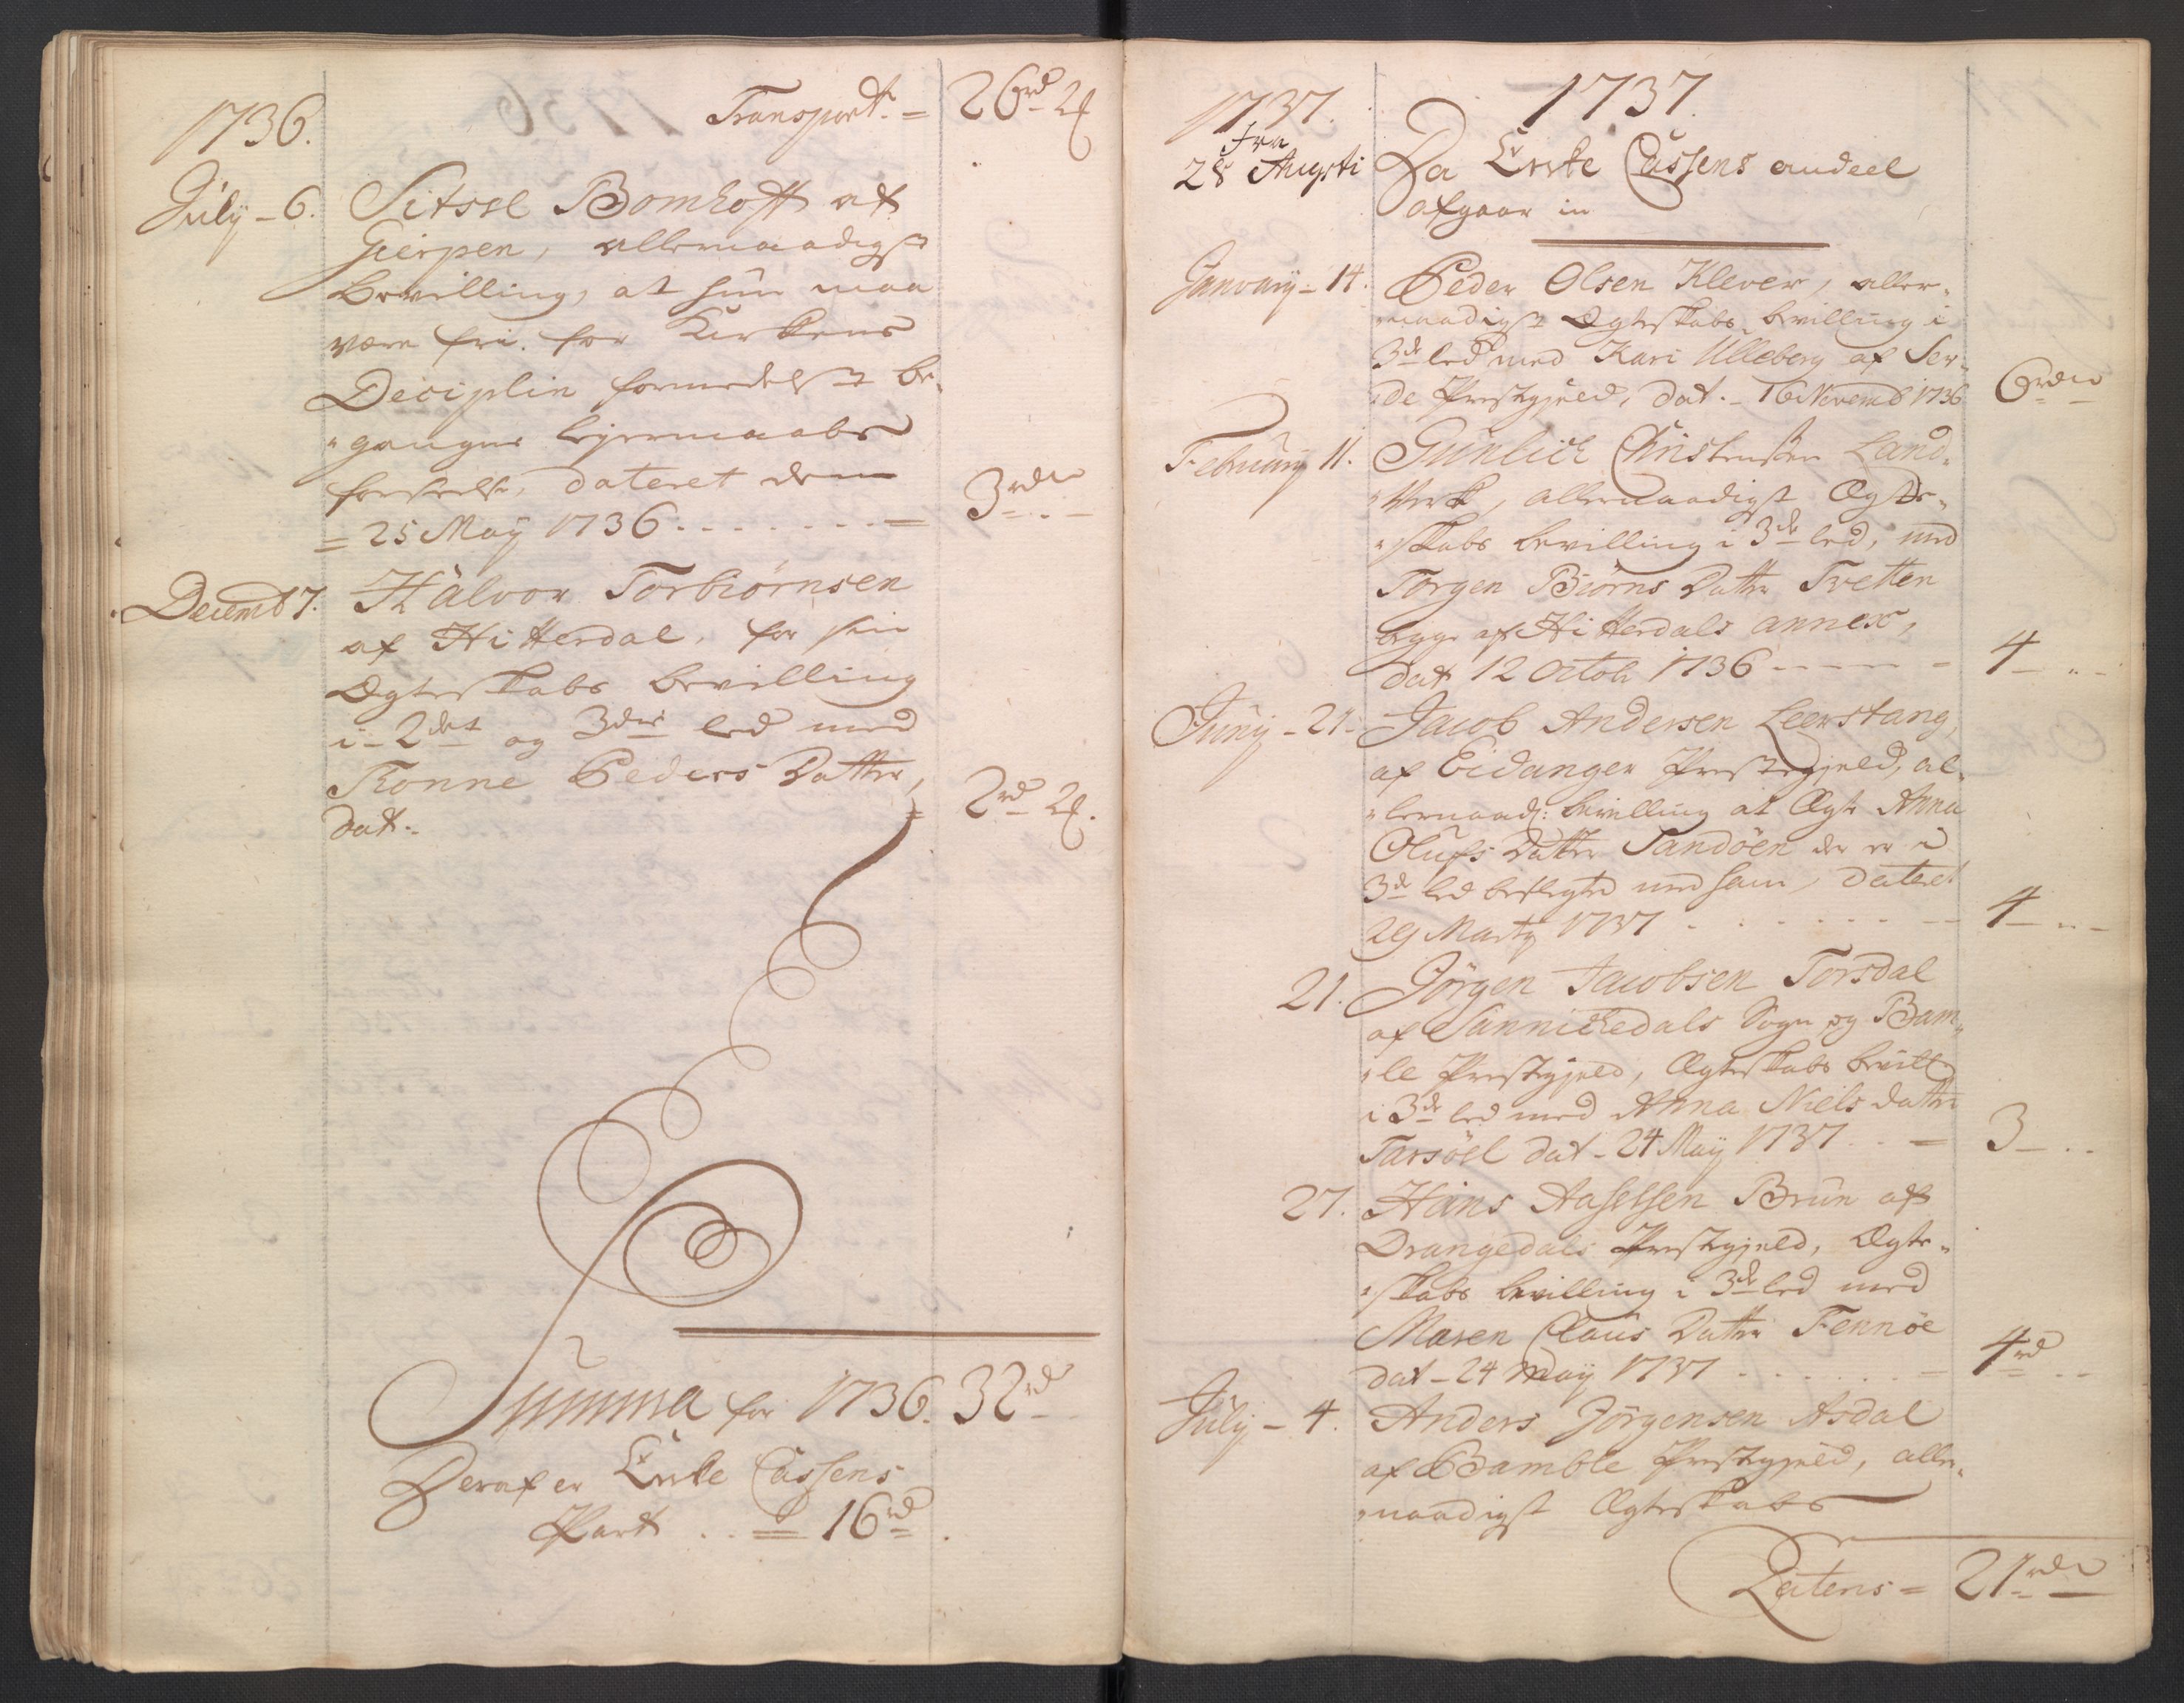 1736.
Transport. = 26 rd 2 ₰
July - 6. Sitsel Bomhoff af
Gierpen, allernaadigst
bevilling, at hun maa
være fri for Kirkens
Deciplin formedelst be-
"gangne lejermaals
forseelse, dateret den
= 25 May 1736. . . . . . . = 3 rdr - . -
Decemb 7. Halvor Torbiørnsen
af Hitterdal, for sin
Ægteskabs bevilling
i - 2det og 3die led med
Tronne Peders Datter,
dat. = 2 rd 2 ₰.
Summa for 1736. 32 rd
Deraf er Enke Cassens
Part . . = 16 rd.
1737.
1737.
fra
28 Augsti Da Enke Cassens andeel
afgaar in
January - 14. Peder Olsen Klever, aller-
"naadigst Ægteskabs bevilling i
3de led med Kari Ulleberg af Ser-
"de Prestegjeld, dat. - 16 Novemb 1736 6 rdr
February 11. Gunlich Christensen Land-
"Verk, allernaadigst Ægte-
"skabs bevilling i 3de led, med
Torgen Biørns Datter Tvetten
begge af Hitterdals annex,
dat 12 Octob 1736 - - - - = 4 - .. -
Juny - 21 - Jacob Andersen Leerstang,
af Eidanger Prestegjeld, al-
"lernaad: bevilling at Ægte Anna
Olufs Datter Sandöen der er i
3de led beslegtet med ham, dateret
29 Marty 1737 . . . . . - - 4 - .. -
21. Jörgen Jacobsen Torsdal
af Sannichedals Sogn og Bam-
"le Prestegjeld, Ægteskabs bevill
i 3de led med Anna Niels datter
Tarsöel dat - 24 May 1737 . . = 3 - . .
27. Hans Aslessen Brun af
Drangedals Prestegjeld, Ægte-
"skabs bevilling i 3de led med
Maren Claus Datter Fennöe
dat - 24 May 1737 . . . . . . - 4 rd . .
July - 4. Anders Jörgensen Asdal
af Bamble Prestegjeld, aller-
"naadigst Ægteskabs
Latens = 21 rdr